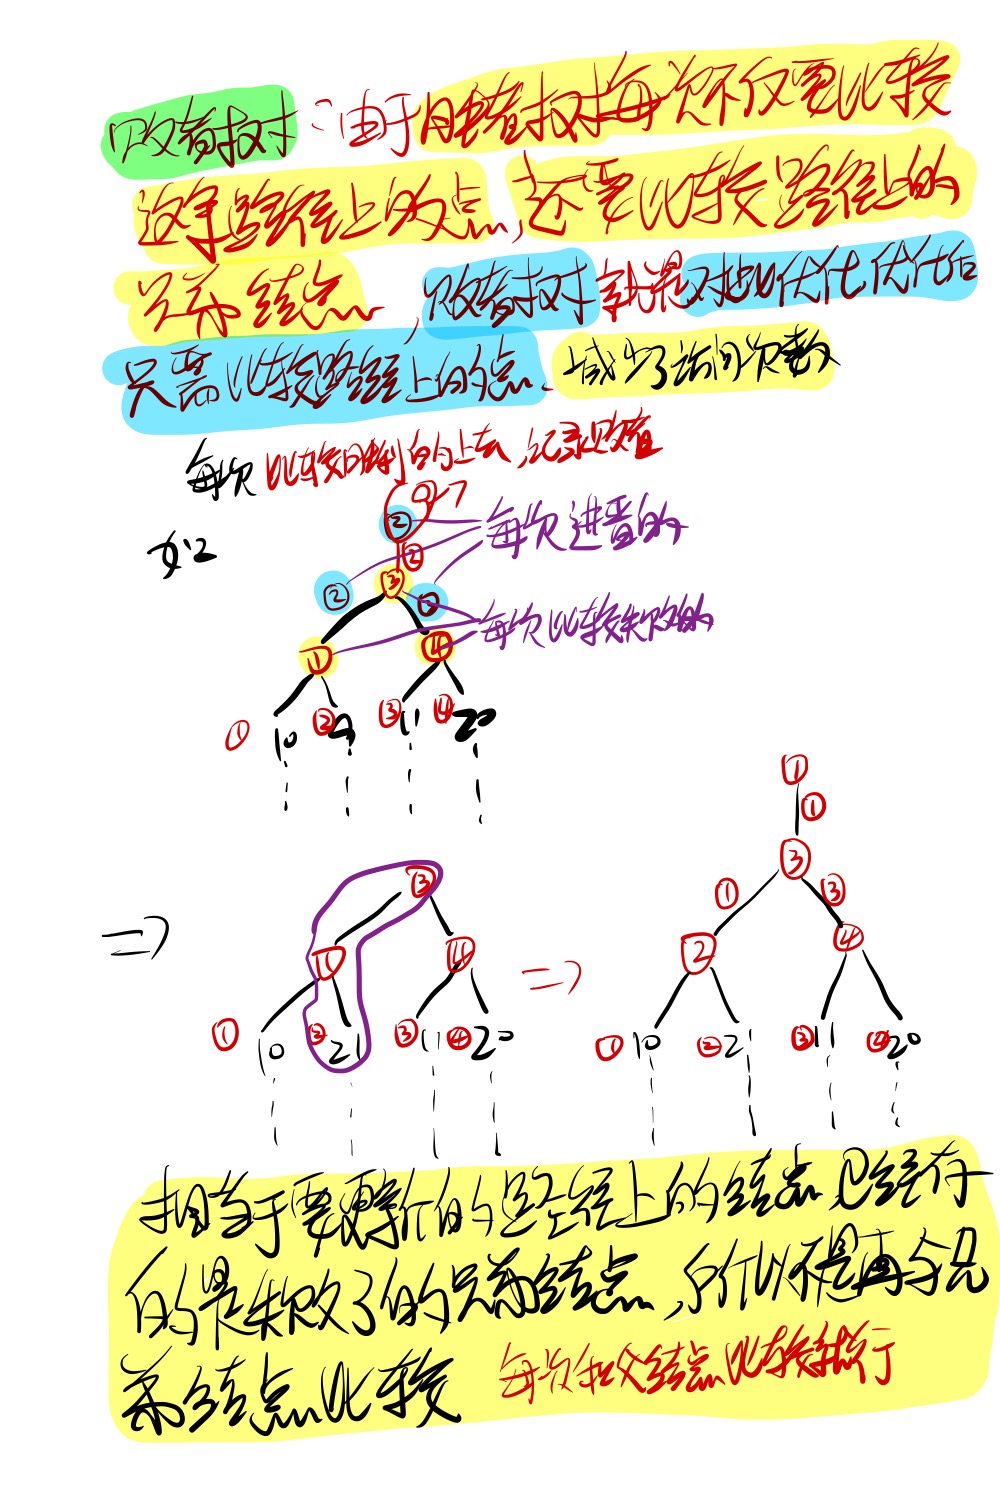 败者树：由于胜者树每次不仅要比较
这条路径上的点，还要比较路径上的
兄弟结点，败者树就是对此优化优化后
只需比较路径上的点、减少了访问次数
每次比较胜利的上去，记录败者
如：
② 每次进晋的
②
② ③
每次比较失败的
① ④
① 10 ② 9 ③ 11 ④ 20
①
①
⇒ ③ ③
① ③
① ④ ⇒ ② ④
① 10 ② 21 ③ 11 ④ 20 ① 10 ② 21 ③ 11 ④ 20
相当于要更新的路径上的结点已经存
的是失败了的兄弟结点，所以不是再与兄
弟结点比较 每次和父结点比较就行